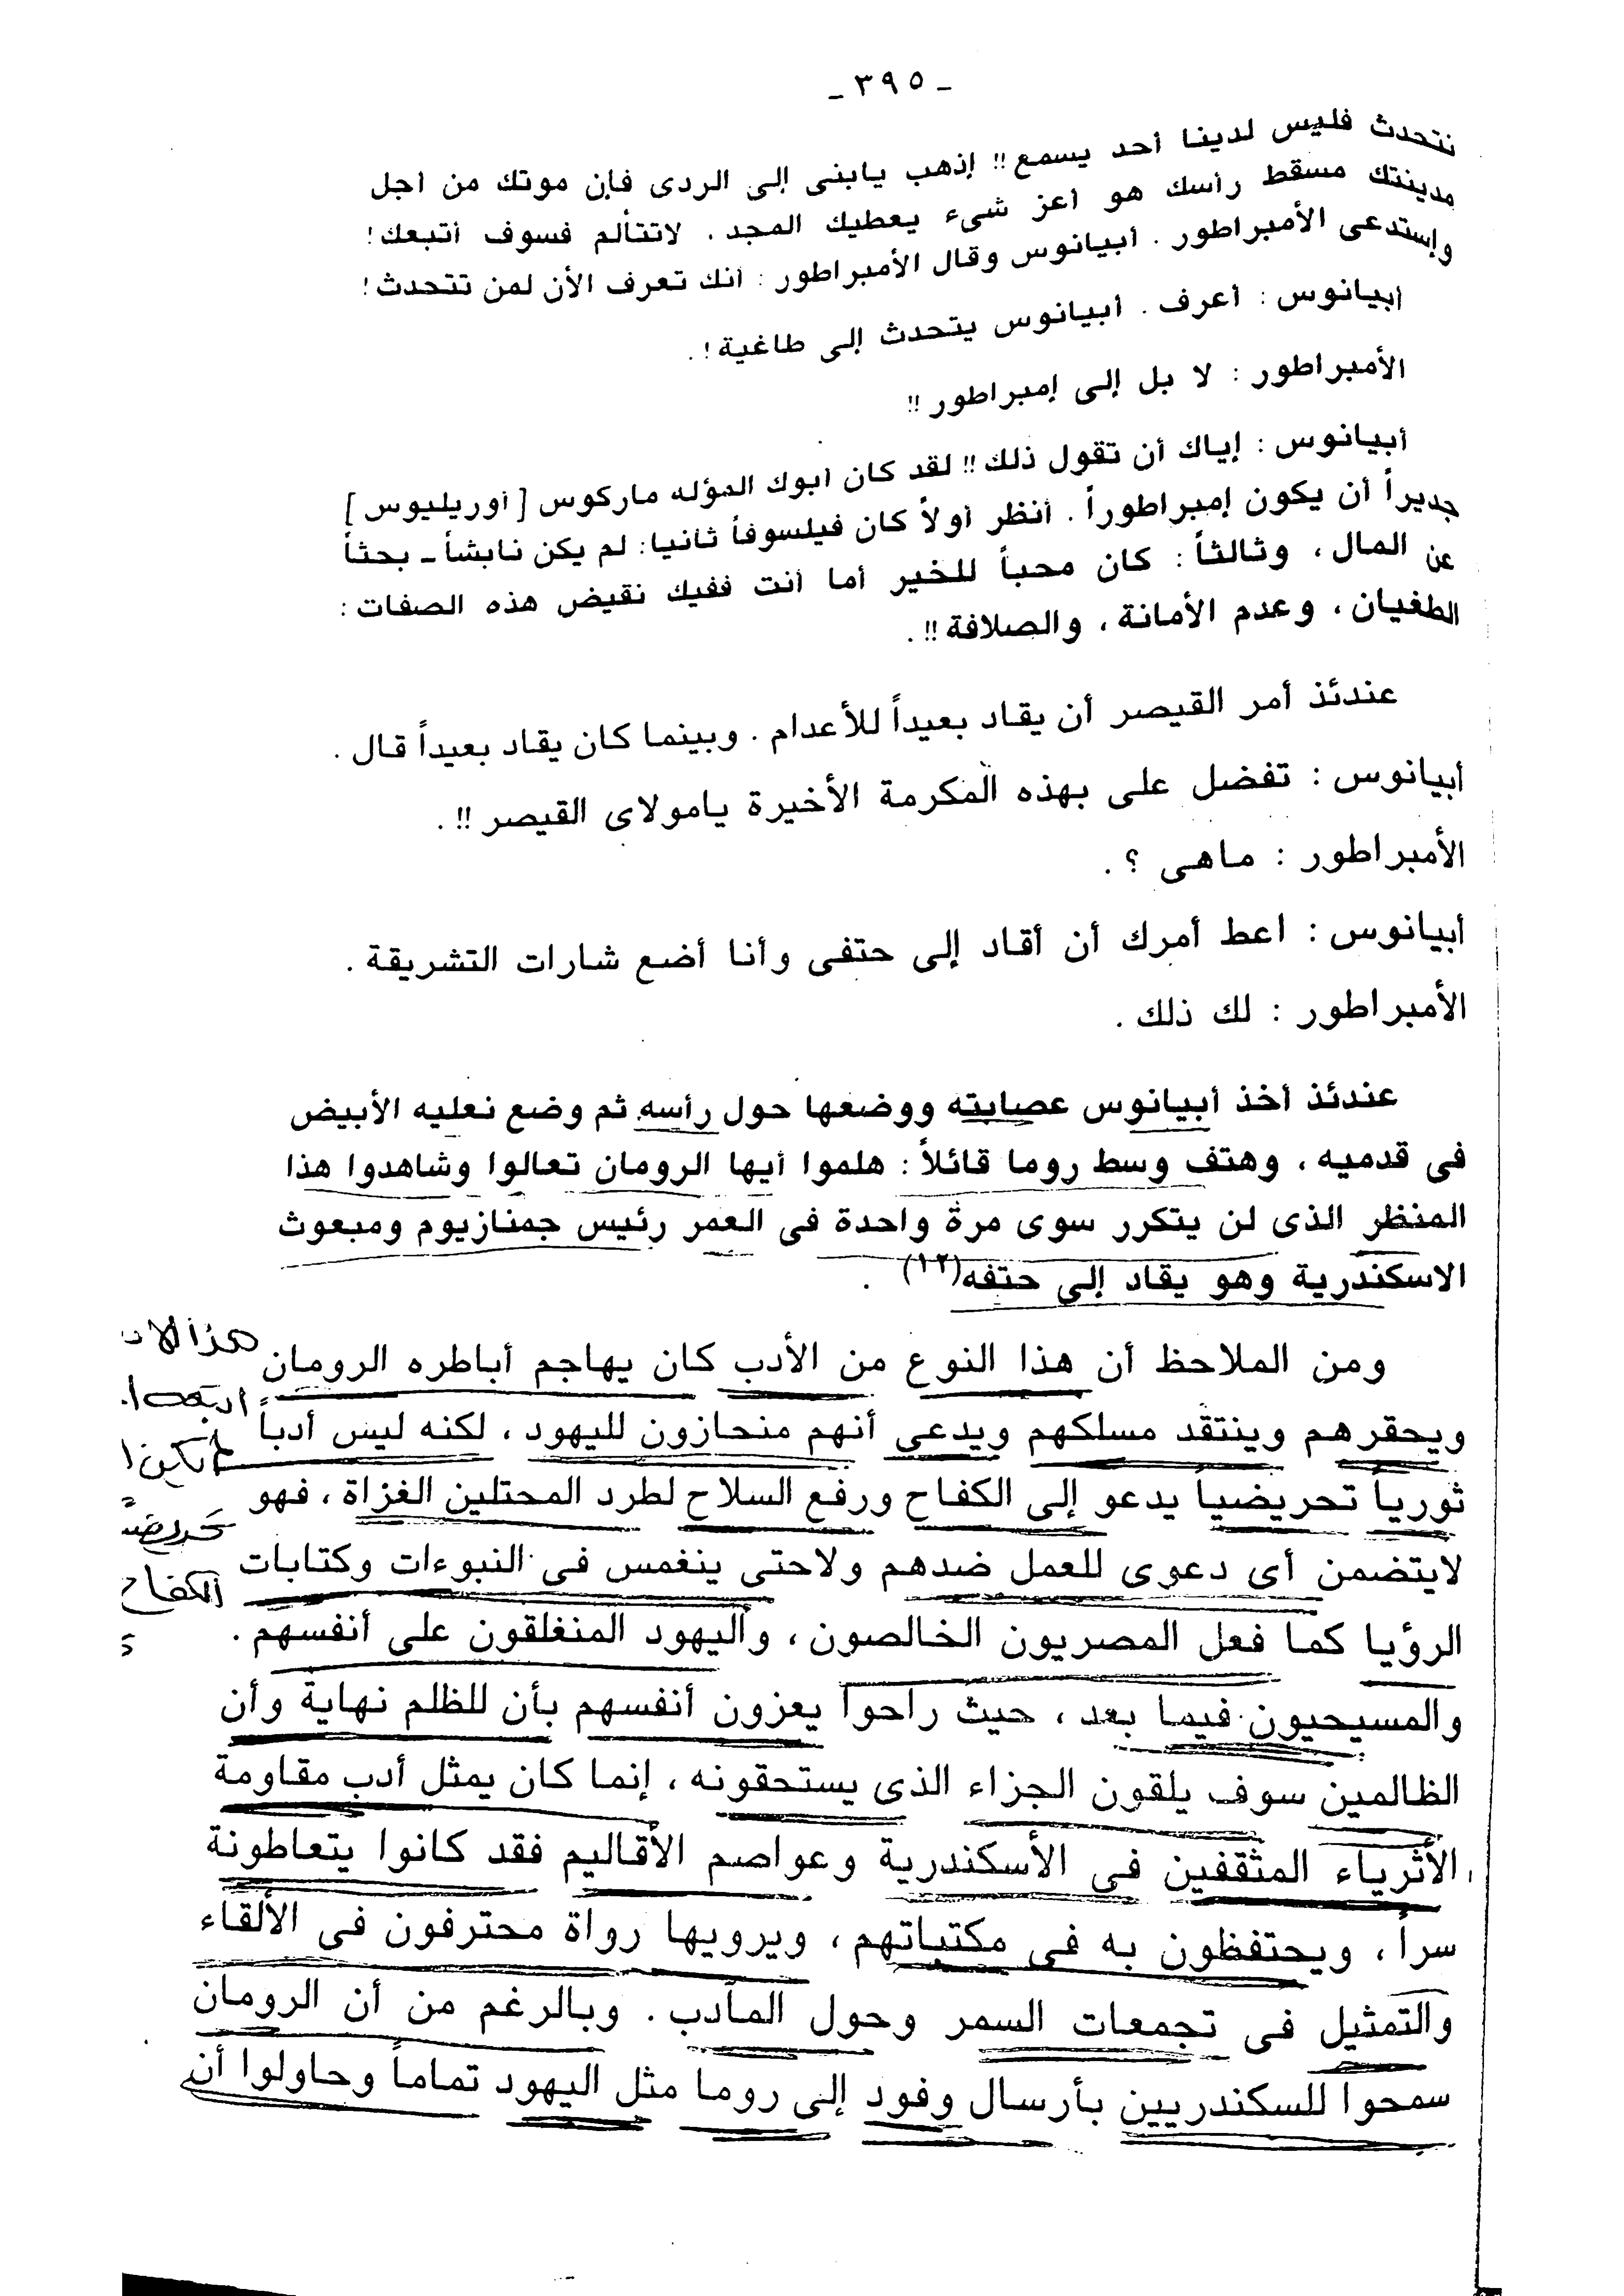 ـ ٣٩٥ ـ
نتحدث فليس لدينا أحد يسمع !! إذهب يابنى إلى الردى فإن موتك من أجل
مدينتك مسقط رأسك هو أعز شىء يعطيك المجد . لاتتألم فسوف أتبعك !
وإستدعى الأمبراطور . أبيانوس وقال الأمبراطور : أنك تعرف الأن لمن تتحدث !
أبيانوس : أعرف . أبيانوس يتحدث إلى طاغية ! .
الأمبراطور : لا بل إلى إمبراطور !!
أبيانوس : إياك أن تقول ذلك !! لقد كان أبوك المؤله ماركوس [ أوريليوس ]
جديراً أن يكون إمبراطوراً . أنظر أولاً كان فيلسوفاً ثانيا : لم يكن نابشاً ـ بحثاً
عن المال ، وثالثاً : كان محباً للخير أما أنت ففيك نقيض هذه الصفات :
الطغيان ، وعدم الأمانة ، والصلافة !! .
عندئذ أمر القيصر أن يقاد بعيداً للأعدام . وبينما كان يقاد بعيداً قال .
أبيانوس : تفضل على بهذه المكرمة الأخيرة يامولاى القيصر !! .
الأمبراطور : ماهى ؟ .
أبيانوس : اعط أمرك أن أقاد إلى حتفى وأنا أضع شارات التشريقة .
الأمبراطور : لك ذلك .
عندئذ أخذ أبيانوس عصابته ووضعها حول رأسه ثم وضع نعليه الأبيض
فى قدميه ، وهتف وسط روما قائلاً : هلموا أيها الرومان تعالوا وشاهدوا هذا
المنظر الذى لن يتكرر سوى مرة واحدة فى العمر رئيس جمنازيوم ومبعوث
الاسكندرية وهو يقاد إلى حتفه (١٢) .
ومن الملاحظ أن هذا النوع من الأدب كان يهاجم أباطره الرومان
ويحقرهم وينتقد مسلكهم ويدعى أنهم منحازون لليهود ، لكنه ليس أدباً
ثورياً تحريضياً يدعو إلى الكفاح ورفع السلاح لطرد المحتلين الغزاة ، فهو
لايتضمن أى دعوى للعمل ضدهم ولاحتى ينغمس فى النبوءات وكتابات
الرؤيا كما فعل المصريون الخالصون ، واليهود المنغلقون على أنفسهم .
والمسيحيون فيما بعد ، حيث راحوا يعزون أنفسهم بأن للظلم نهاية وأن
الظالمين سوف يلقون الجزاء الذى يستحقونه ، إنما كان يمثل أدب مقاومة
الأثرياء المثقفين فى الأسكندرية وعواصم الأقاليم فقد كانوا يتعاطونة
سراً ، ويحتفظون به فى مكتباتهم ، ويرويها رواة محترفون فى الألقاء
والتمثيل فى تجمعات السمر وحول المآدب . وبالرغم من أن الرومان
سمحوا للسكندريين بأرسال وفود إلى روما مثل اليهود تماماً وحاولوا أن
الكفاح